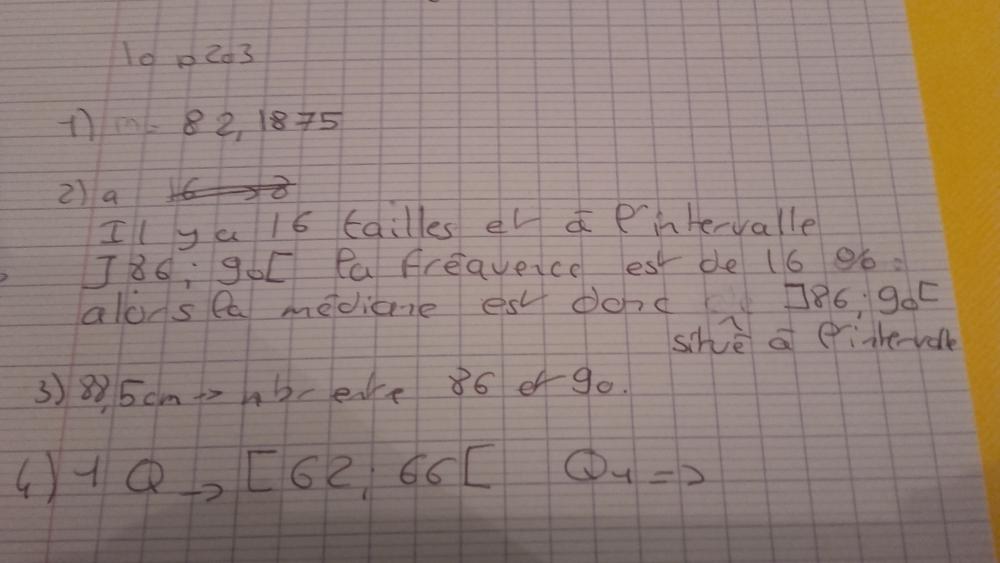 10 p203
1) m= 82,1875
2) a 16 → 8
Il y a 16 tailles et à l'intervalle
]86; 90[ la fréquence est de 16 %.
alors la médiane est donc ]86; 90[
situé à l'intervalle
3) 88,5cm → nbr entre 86 et 90.
4) 1 Q → [62; 66[ Q1 =>